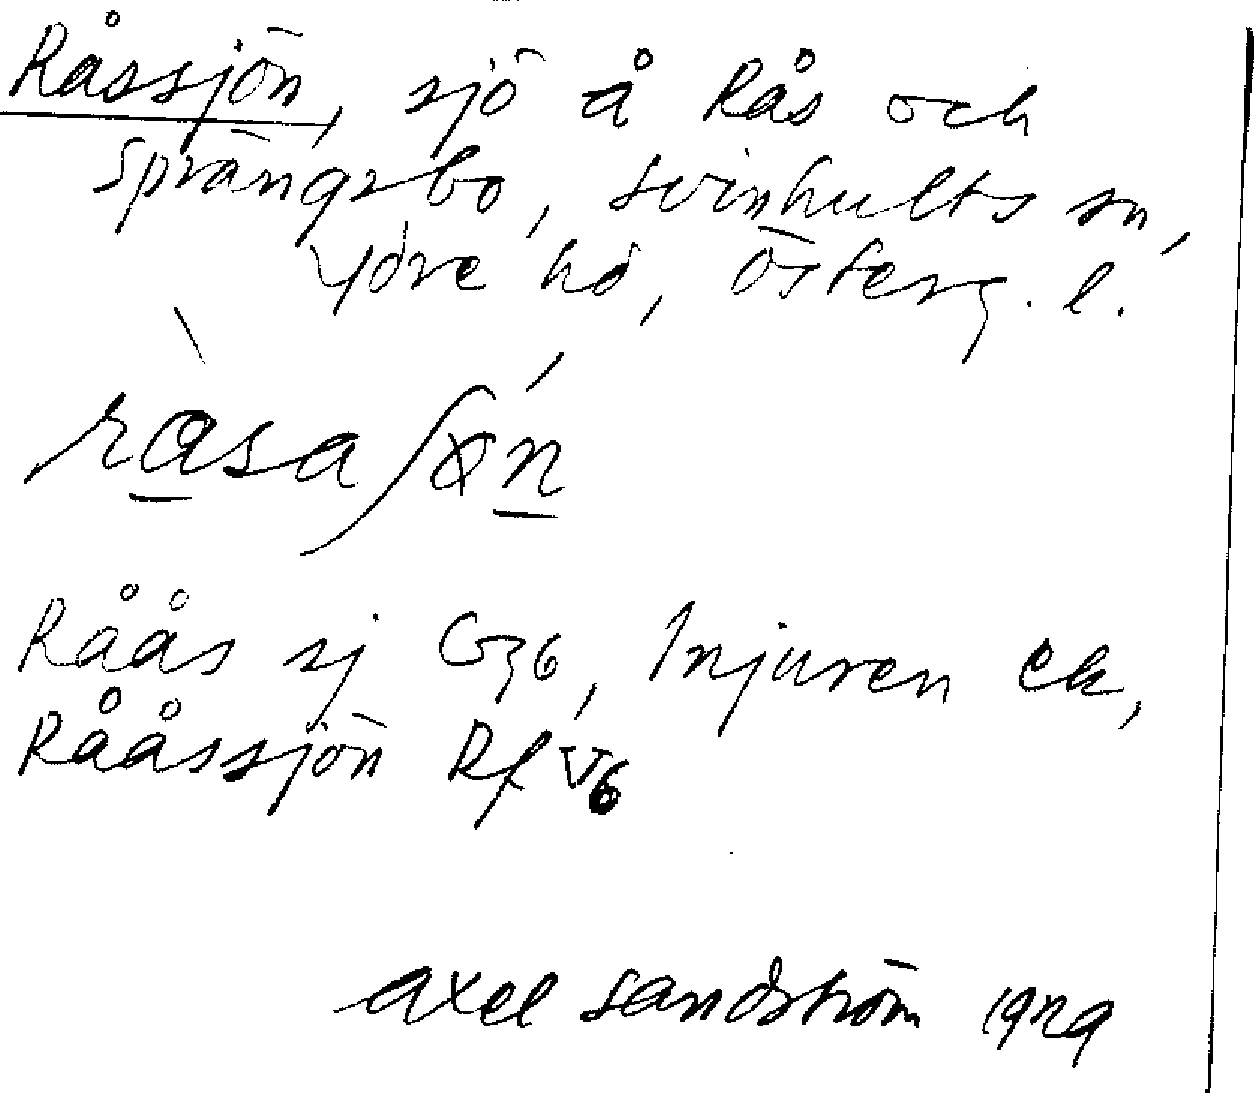 Råssjön, sjö å Rås och
Sprängsbo, Svinhults sn,
Ydre hd, Österg. l.
Råås sj G36, Injuren ek,
Rååssjön Rf V6
Axel Sandström 1929